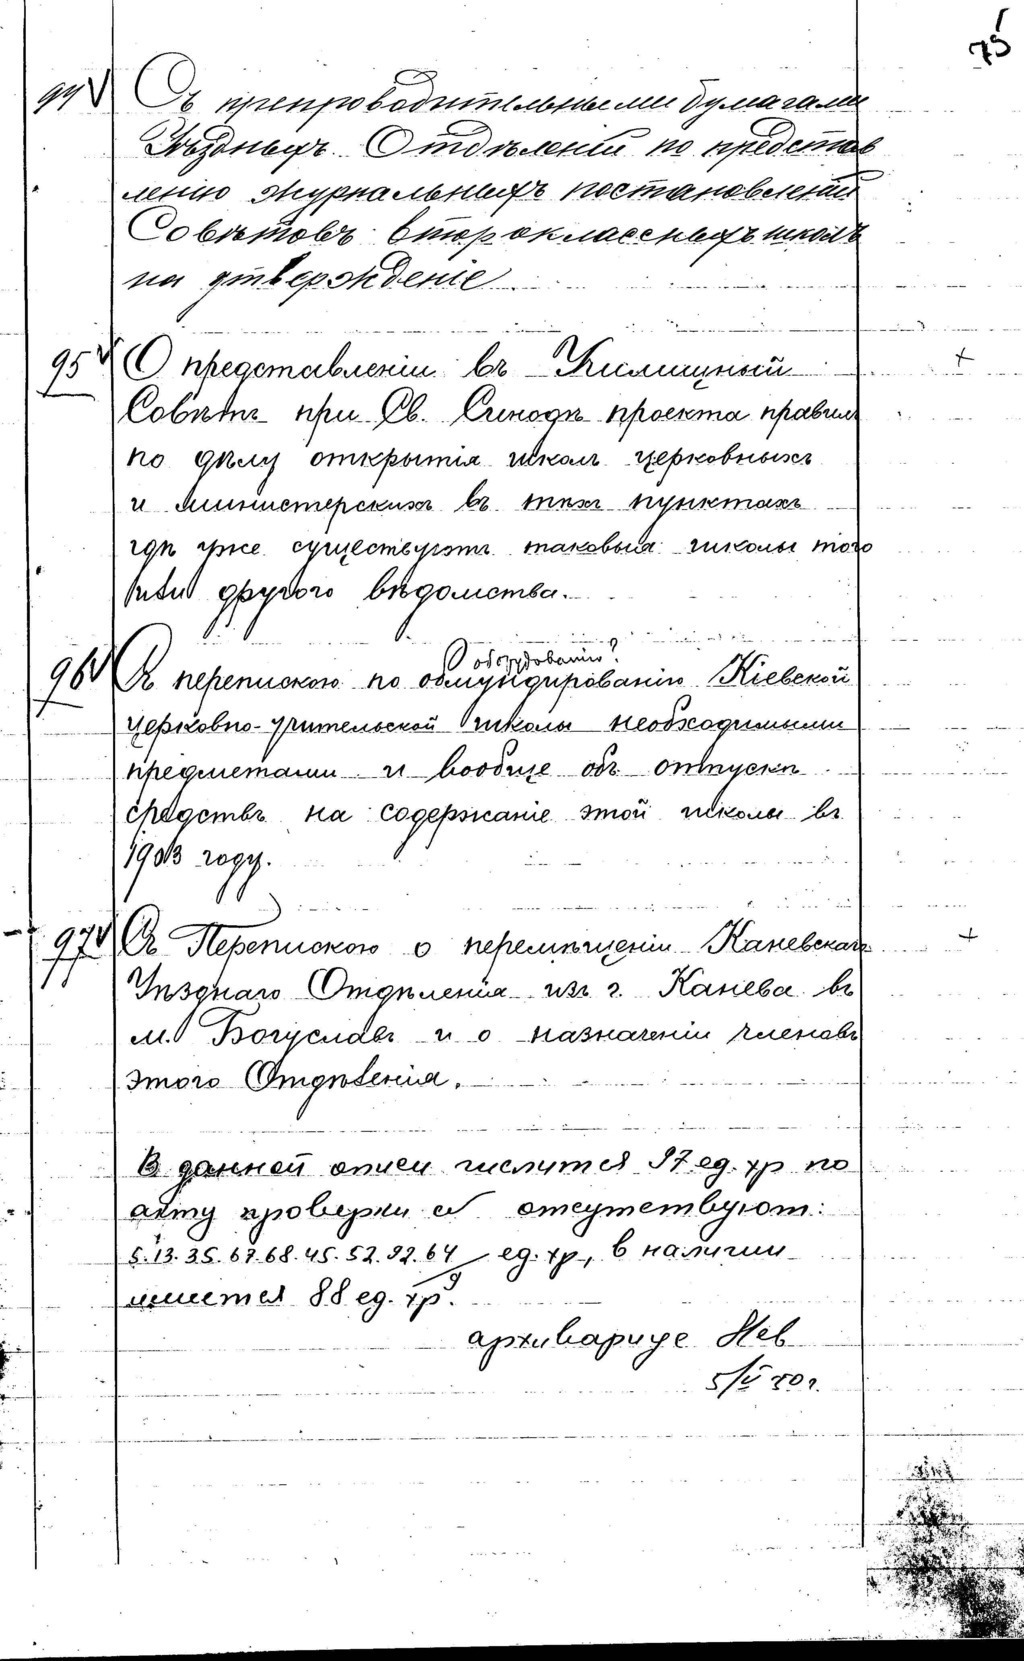 75
94 V Съ препроводительными бумагами
Уѣздныхъ Отдѣленій по представ
ленію журнальныхъ постановленій
Совѣтовъ второклассныхъ школъ
на утвержденіе
95 V О представленіи въ Училищный +
Совѣтъ при Св. Синодѣ проекта правилъ
по дѣлу открытія школъ церковныхъ
и министерскихъ въ тѣхъ пунктахъ
гдѣ уже существуютъ таковыя школы того
или другого вѣдомства.
оборудованію?
96 V Съ перепискою по обмундированію Кіевской
церковно-учительской школы необходимыми
предметами и вообще объ отпускѣ
средствъ на содержаніе этой школы въ
1903 году.
97 V Съ Перепискою о перемѣщеніи Каневскаго +
Уѣзднаго Отдѣленія изъ г. Канева въ
м. Богуславъ и о назначеніи членовъ
этого Отдѣленія.
В данной описи числится 97 ед. хр по
акту проверки отсутствуют:
5. 13. 35. 67. 68. 45. 52. 92. 64 ед. хр, в наличии
имеется 88 ед. хр.
архивариус
5/V 50 г.